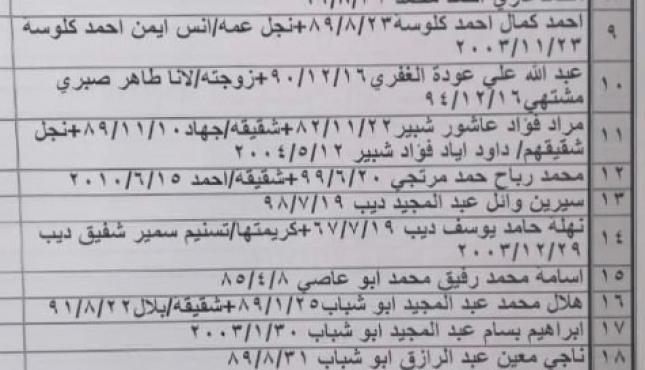 ٩ احمد كمال احمد كلوسة٨٩/٨/٢٣+نجل عمه/انس ايمن احمد كلوسة
٢٠٠٣/١١/٢٣
١٠ عبد الله علي عودة الغفري٩٠/١٢/١٦+زوجته/لانا طاهر صبري
مشتهي٩٤/١٢/١٦
١١ مراد فؤاد عاشور شبير٨٢/١١/٢٢+شقيقه/جهاد٨٩/١١/١٠+نجل
شقيقهم/ داود اياد فؤاد شبير ٢٠٠٤/٥/١٢
١٢ محمد رباح حمد مرتجي ٩٩/٦/٢٠+شقيقه/احمد ٢٠١٠/٦/١٥
١٣ سيرين وائل عبد المجيد ديب ٩٨/٧/١٩
١٤ نهله حامد يوسف ديب ٦٧/٧/١٩+كريمتها/تسنيم سمير شفيق ديب
٢٠٠٣/١٢/٢٩
١٥ اسامة محمد رفيق محمد ابو عاصي ٨٥/٤/٨
١٦ هلال محمد عبد المجيد ابو شباب٨٩/١/٢٥+شقيقه/بلال٩١/٨/٢٢
١٧ ابراهيم بسام عبد المجيد ابو شباب ٢٠٠٣/١/٣٠
١٨ ناجي معين عبد الرازق ابو شباب ٨٩/٨/٣١